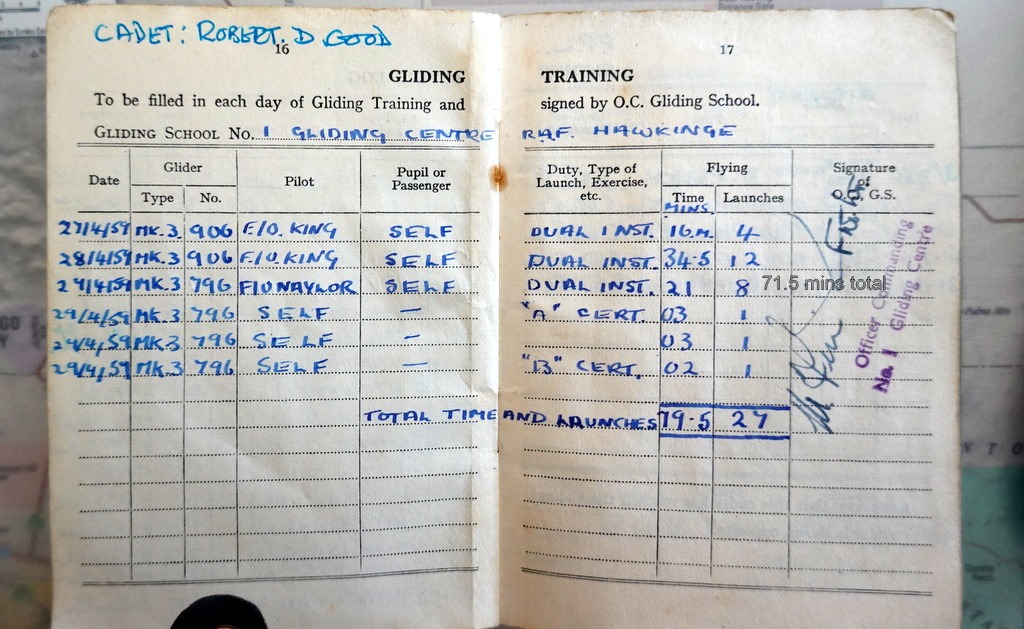 CADET: ROBERT. D GOOD
16
GLIDING
To be filled in each day of Gliding Training and
GLIDING SCHOOL NO. 1 GLIDING CENTRE
Date Glider Type No. Pilot Pupil or Passenger
27/4/59 MK.3. 906 F/O. KING SELF
28/4/59 MK.3 906 F/O. KING SELF
29/4/59 MK.3 796 F/O NAYLOR SELF
29/4/59 MK.3 796 SELF —
29/4/59 MK3 796 SELF —
29/4/59 MK.3 796 SELF —
TOTAL TIME
17
TRAINING
signed by O.C. Gliding School.
RAF. HAWKINGE
Duty, Type of Launch, Exercise, etc. Flying Time MINS. Launches Signature of O.C., G.S.
DUAL INST. 16M. 4
DUAL INST. 34·5 12
DUAL INST. 21 8 71.5 mins total
"A" CERT. 03 1
03 1
"B" CERT. 02 1
AND LAUNCHES 79·5 27
Officer Commanding
No. 1 Gliding Centre